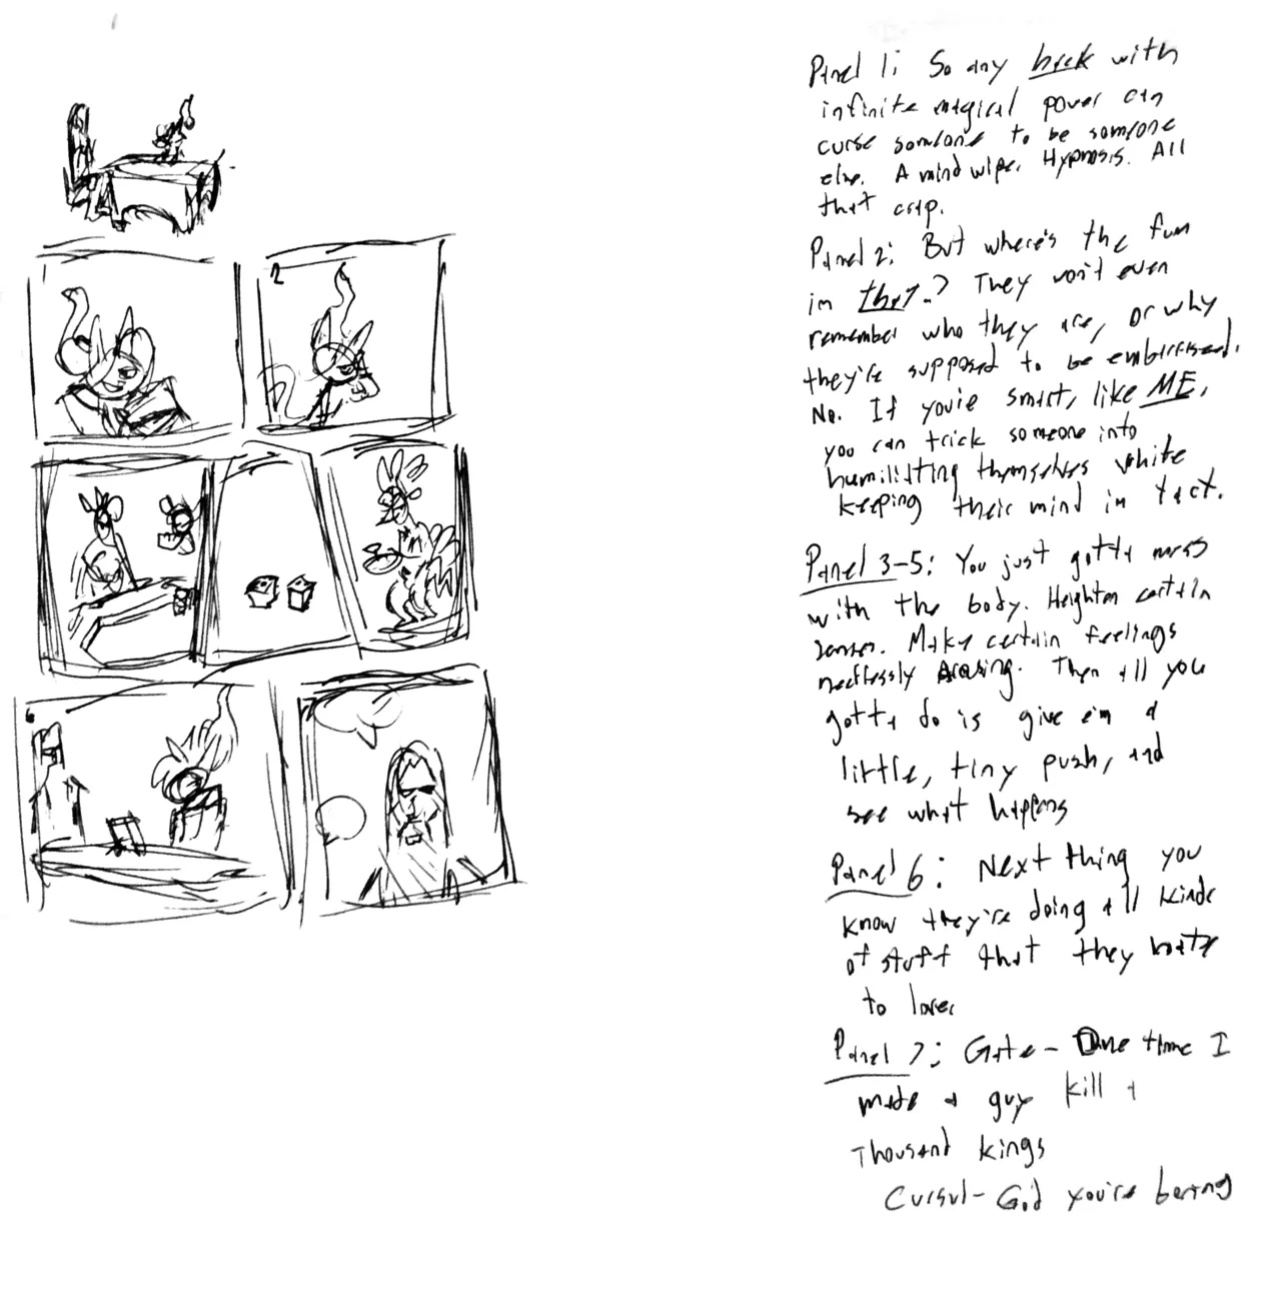 2
6
Panel 1: So any hack with
infinite magical power can
curse someone to be someone
else. A mind wipe. Hypnosis. All
that crap.
Panel 2: But where's the fun
in that? They won't even
remember who they are, or why
they're supposed to be embarrassed.
No. If you're smart, like ME,
you can trick someone into
humiliating themselves while
keeping their mind in tact.
Panel 3-5: You just gotta mess
with the body. Heighten certain
senses. Make certain feelings
needlessly Arousing. Then all you
gotta do is give em a
little, tiny push, and
see what happens
Panel 6: Next thing you
know they're doing all kinds
of stuff that they hate
to love.
Panel 7: Gate- One time I
made a guy kill a
Thousand kings
God you're boring